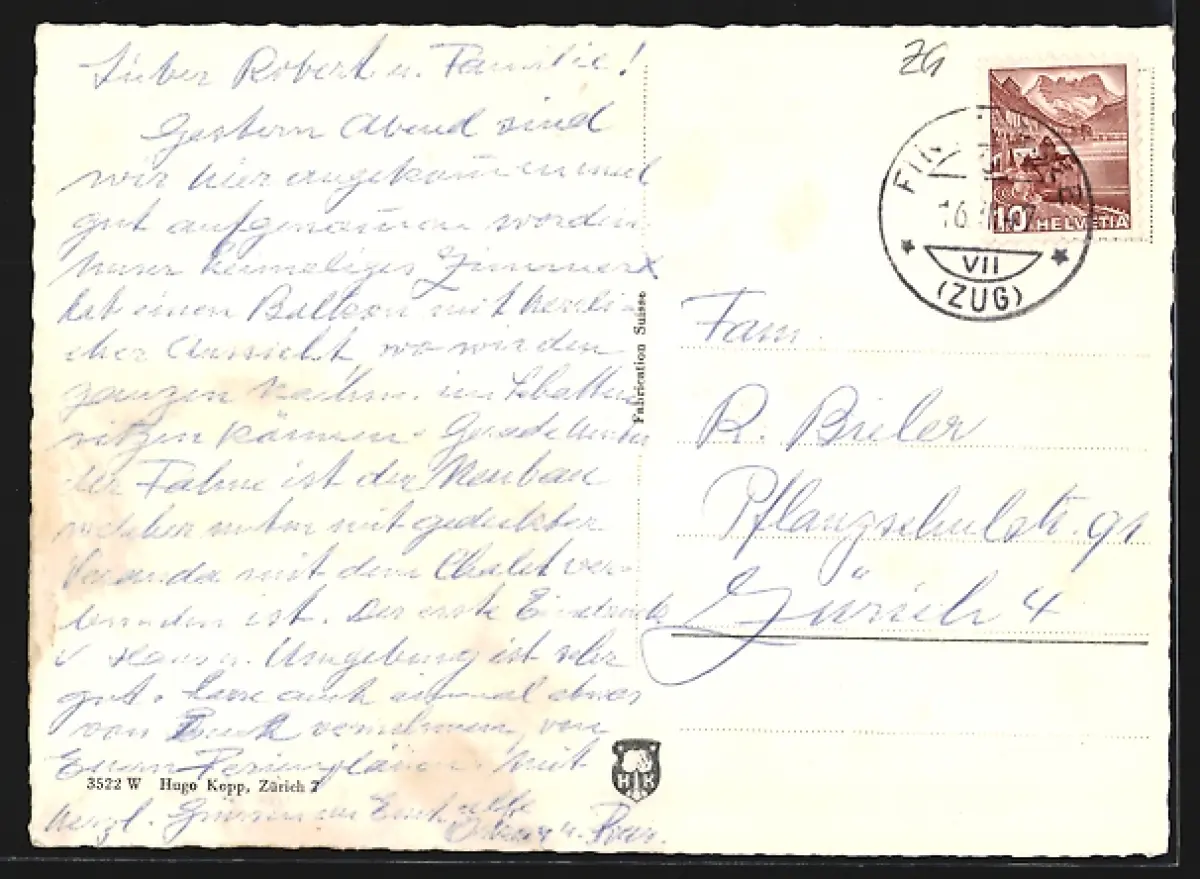 Lieber Robert u. Familie!
Gestern Abend sind
wir hier angekommen und
gut aufgenommen worden
Unser heimeliges Zimmer
hat einen Balkon mit herrli-
cher Aussicht, wo wir den
ganzen im Schatten
sitzen können. Gerade hinter
der Fahne ist der Neubau
welcher mit gedeckter
Veranda mit dem Chalet ver-
bunden ist. Der erste Eindruck
v. Haus u. Umgebung ist sehr
gut. Lasse auch einmal etwas
von Euch vernehmen, von
Euern Ferienplänen. Mit
herzl. Grüssen an Euch alle
u.
3522 W Hugo Kopp, Zürich 7
Fabrication Suisse
HK
ZG
10 HELVETIA
16.
VII
(ZUG)
Fam.
R. Bieler
Pflanzschulstr. 91
Zürich 4